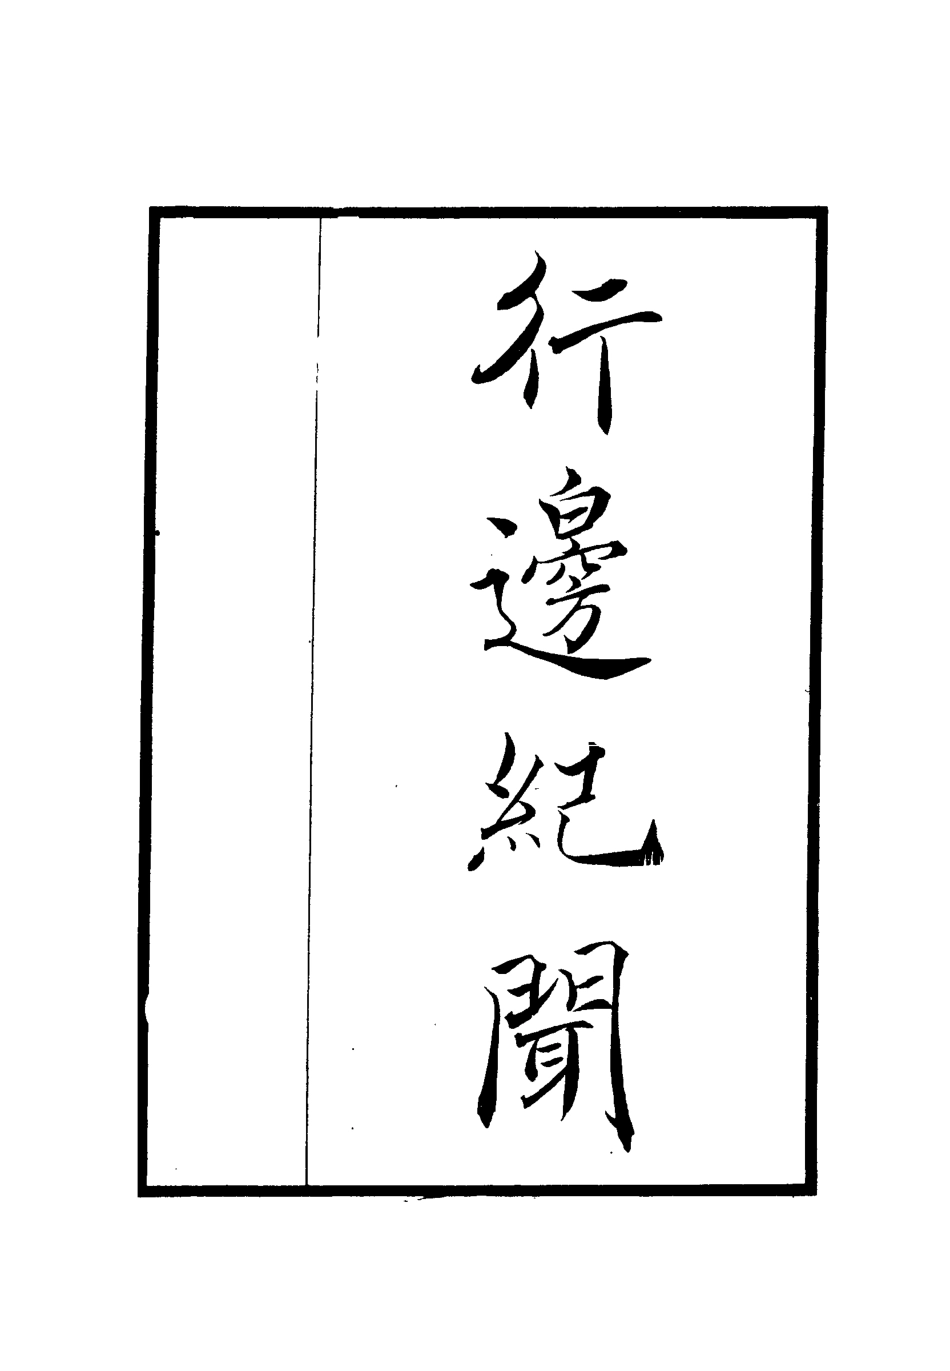 行邊紀聞